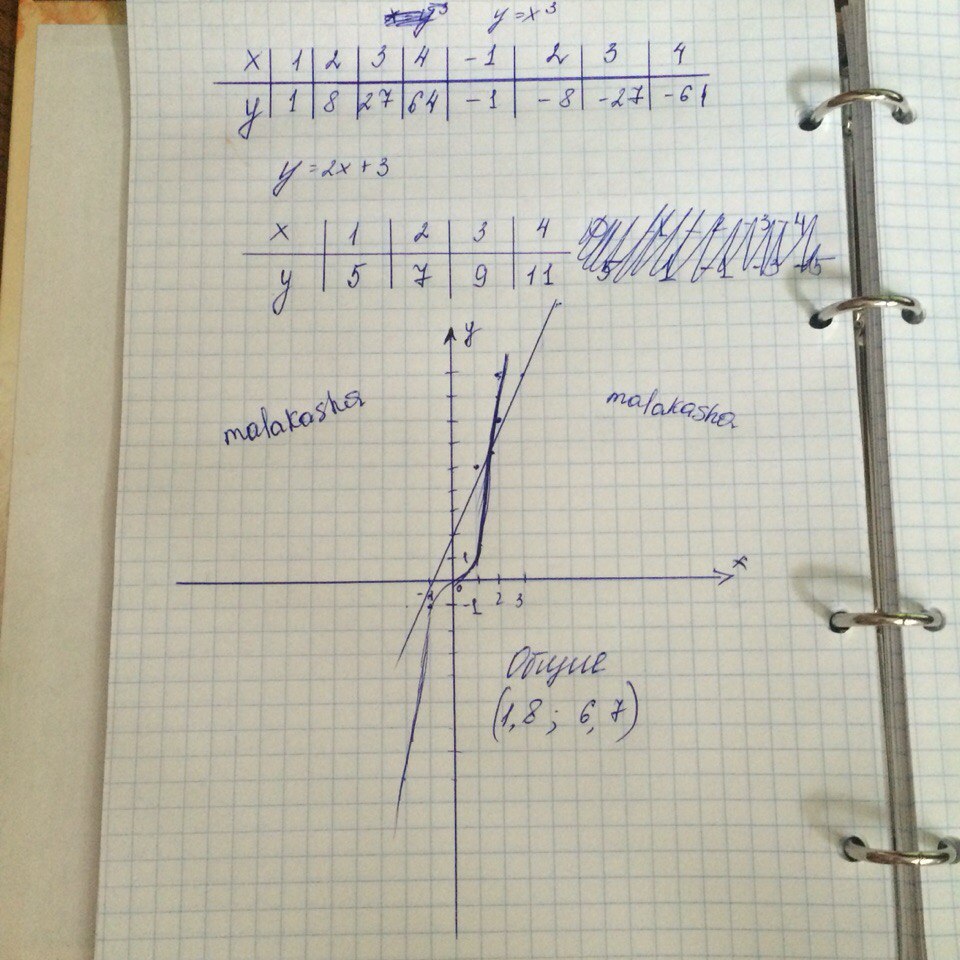 y = x³
x 1 2 3 4 -1 2 3 4
y 1 8 27 64 -1 -8 -27 -64
y = 2x + 3
x 1 2 3 4
y 5 7 9 11
y
malakasha malakasha
1
x
-1 0 2 3
-1
Общие
(1,8 ; 6,7)